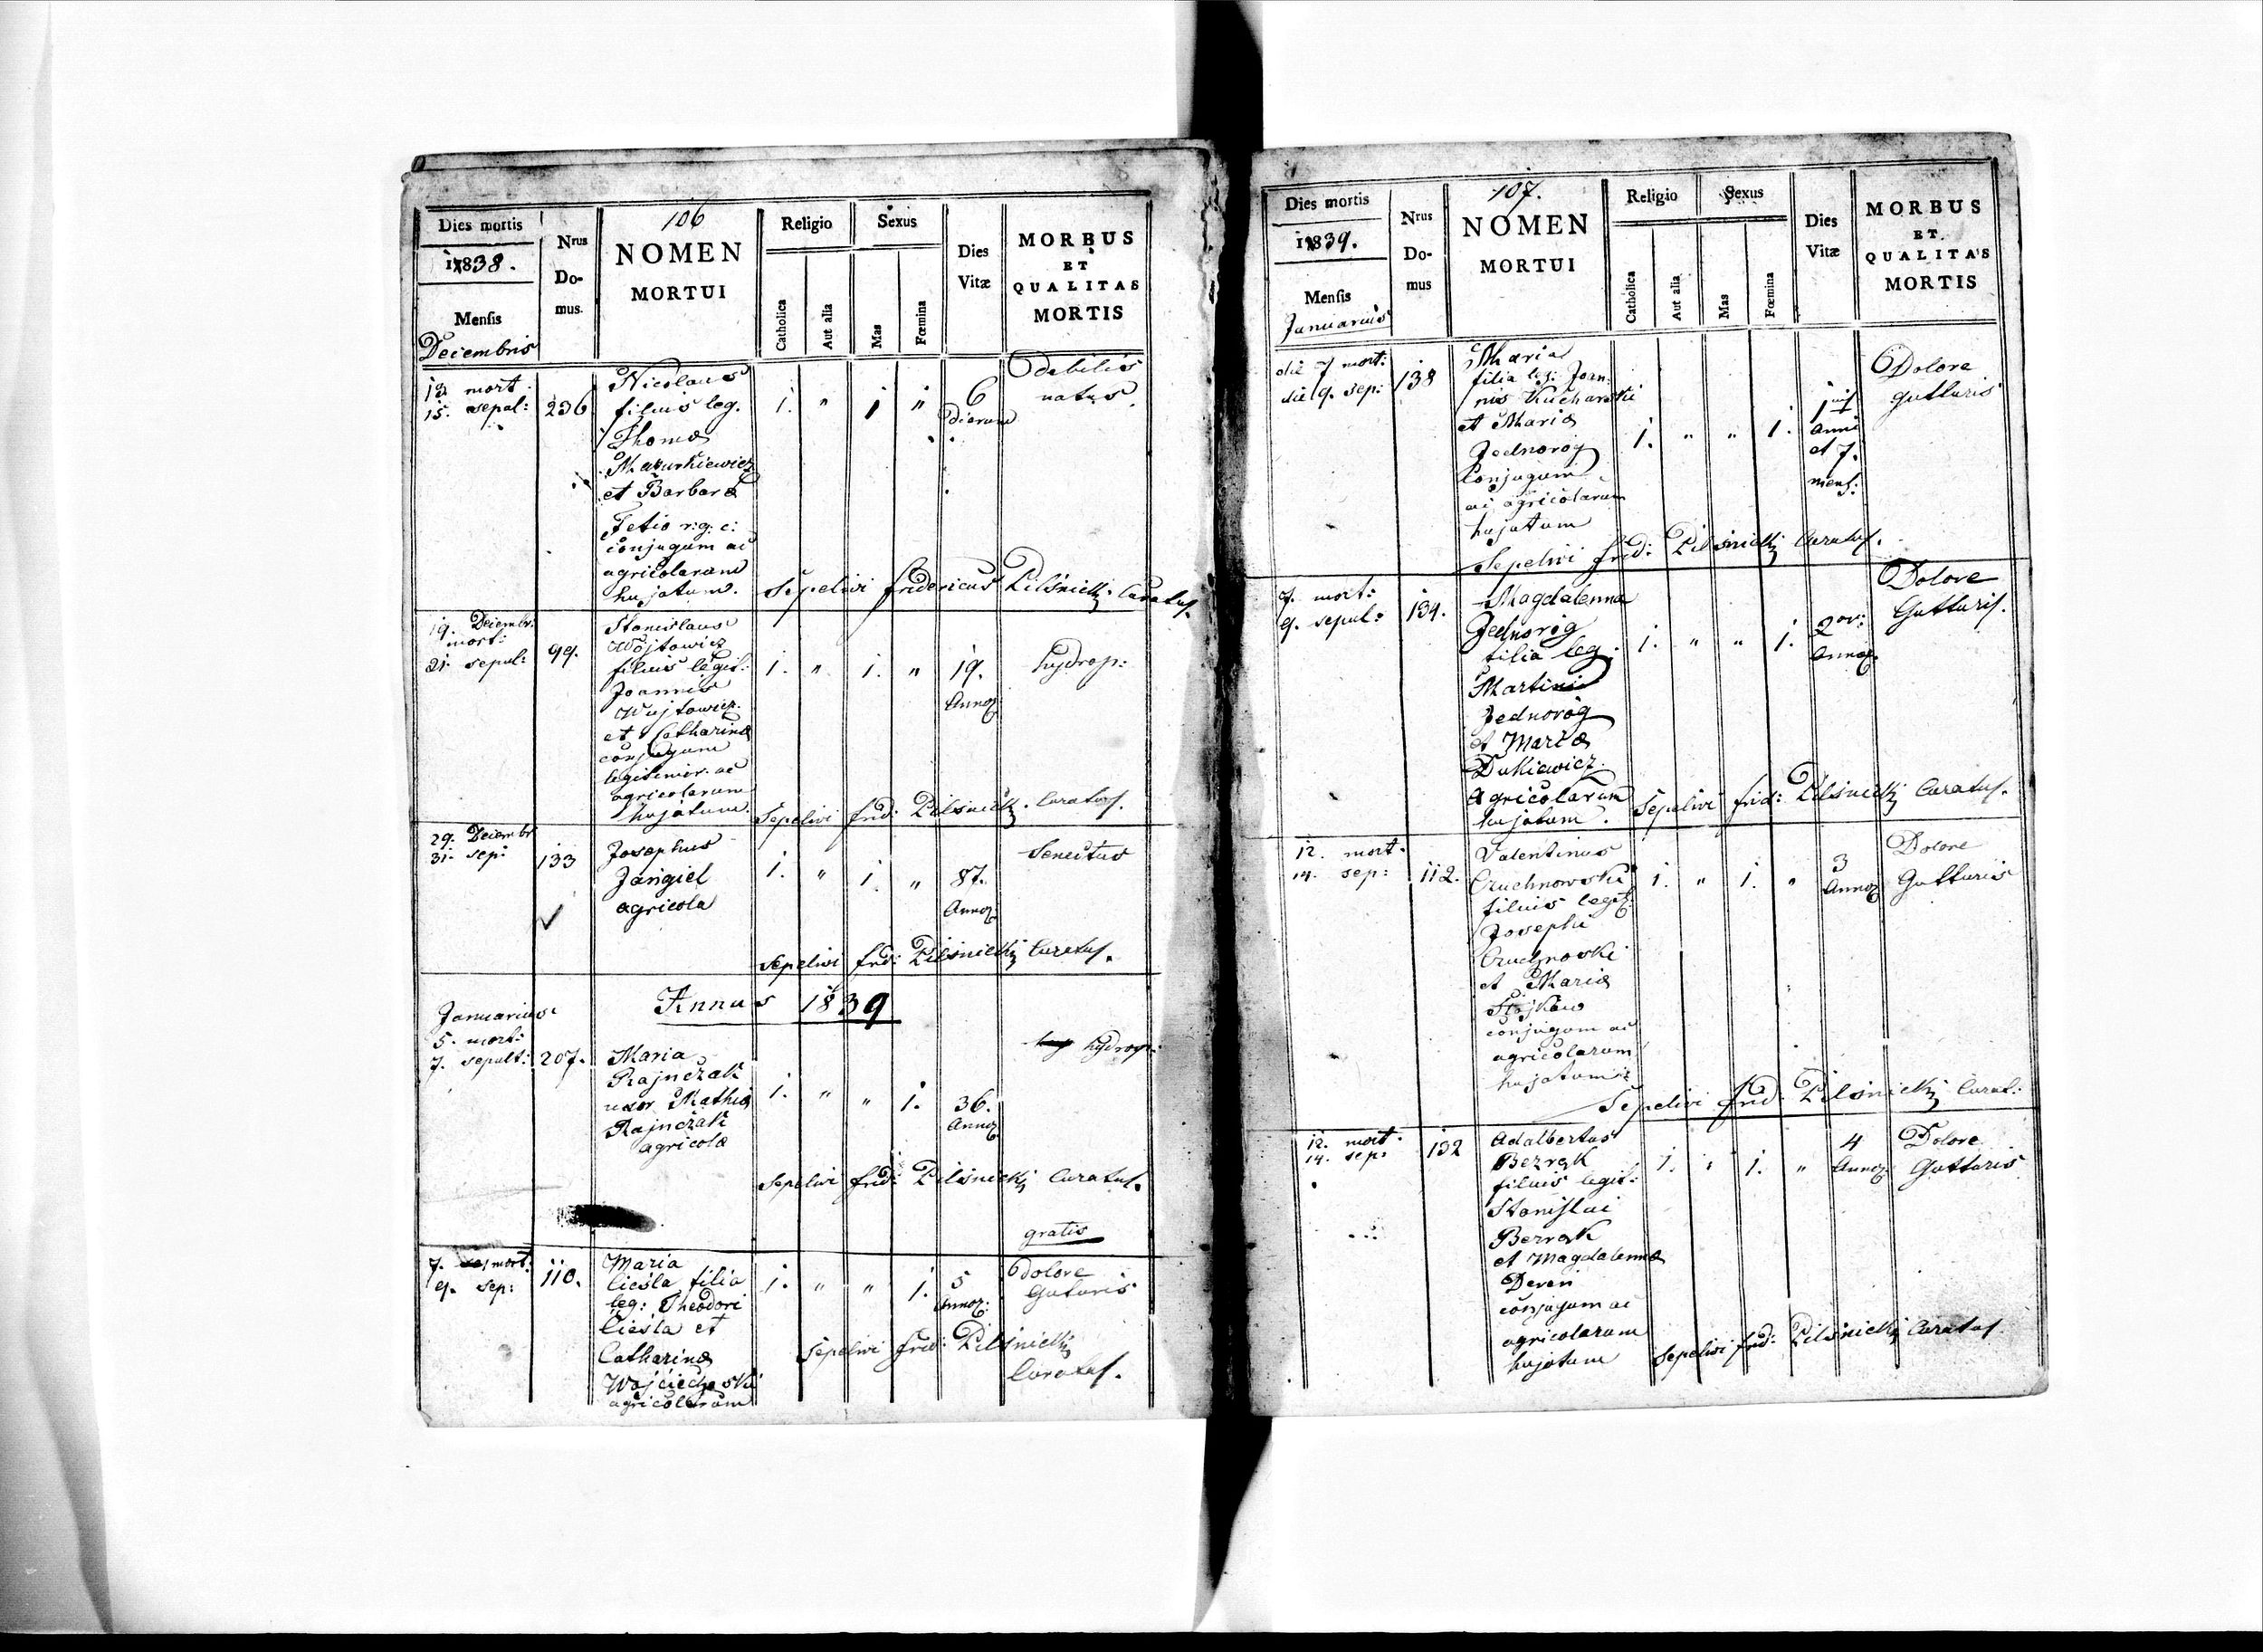 106
Dies mortis
1838.
Mensis
Decembris
Nrus
Do-
mus.
NOMEN
MORTUI
Religio
Catholica
Aut alia
Sexus
Mas
Fœmina
Dies
Vitæ
MORBUS
ET
QUALITAS
MORTIS
mort
15. sepul:
236
Nicolaus
filius leg.
Thomæ
Mazurkiewicz
et Barbaræ
r: g: c:
conjugum ac
agricolarum
hujatum.
1. " 1 "
6
dierum
Debilis
natus
Sepelivi Fridericus Pilsnicki Curatus.
19. Decembr:
mort:
21. sepul:
99.
Stanislaus
Wojtowicz
filius legit:
Joannis
Wujtowicz
et Catharinæ
conjugum
legitimor. ac
agricolarum
hujatum.
1. " 1. "
19.
Annor.
hydrop:
Sepelivi frid: Pilsnicki Curatus.
29. Decembr
31. sep:
133
Josephus
Jangiel
agricola
1. " 1. "
87.
Annor.
Senectus
Sepelivi frid: Pilsnicki Curatus.
Annus 1839
Januarius
5. mort:
7. sepult:
207.
Maria
Rajnczak
uxor Mathiæ
Rajnczak
agricolæ
1. " " 1.
36.
Annor.
hydrop:
Sepelivi frid: Pilsnicki Curatus.
gratis
7. mort:
9. sep:
110.
Maria
Cieśla filia
leg: Theodori
Cieśla et
Catharinæ
Wojciechoski
agricolarum
1. " " 1.
5
Annor:
Dolore
Guturis
Sepelivi frid: Pilsnicki
Curatus.
107.
Dies mortis
1839.
Mensis
Januarius
Nrus
Do-
mus
NOMEN
MORTUI
Religio
Catholica
Aut alia
Sexus
Mas
Fœmina
Dies
Vitæ
MORBUS
ET
QUALITAS
MORTIS
die 7 mort:
die 9. sep:
138
Maria
filia leg: Joan-
nis Kucharski
et Mariæ
Jednorog
Conjugum
ac agricolarum
hujatum
1. " " 1.
1
anni
et 7.
mens:
Dolore
gutturis
Sepelivi frid: Pilsnicki Curatus.
7. mort:
9. sepul:
134.
Magdalenna
Jednorog
filia leg.
Martini
Jednorog
et Mariæ
Dukiewicz
Agricolarum
hujatum.
1. " " 1.
2
Annor.
Dolore
Gutturis.
Sepelivi frid: Pilsnicki Curatus.
12. mort.
14. sep:
112.
Valentinus
Czuchnowski
filius legit:
Josephi
Czuchnoski
et Mariæ
Stojkow
conjugum ac
agricolarum
hujatum
1. " 1. "
3
Annor.
Dolore
Gutturis
Sepelivi frid: Pilsnicki Curat:
12. mort.
14. sep:
132
Adalbertus
Bezrąk
filius legit:
Stanislai
Bezrąk
et Magdalennæ
Deren
conjugum ac
agricolarum
hujatum
1. " 1. "
4
Annor.
Dolore
Gutturis
Sepelivi frid: Pilsnicki Curatus